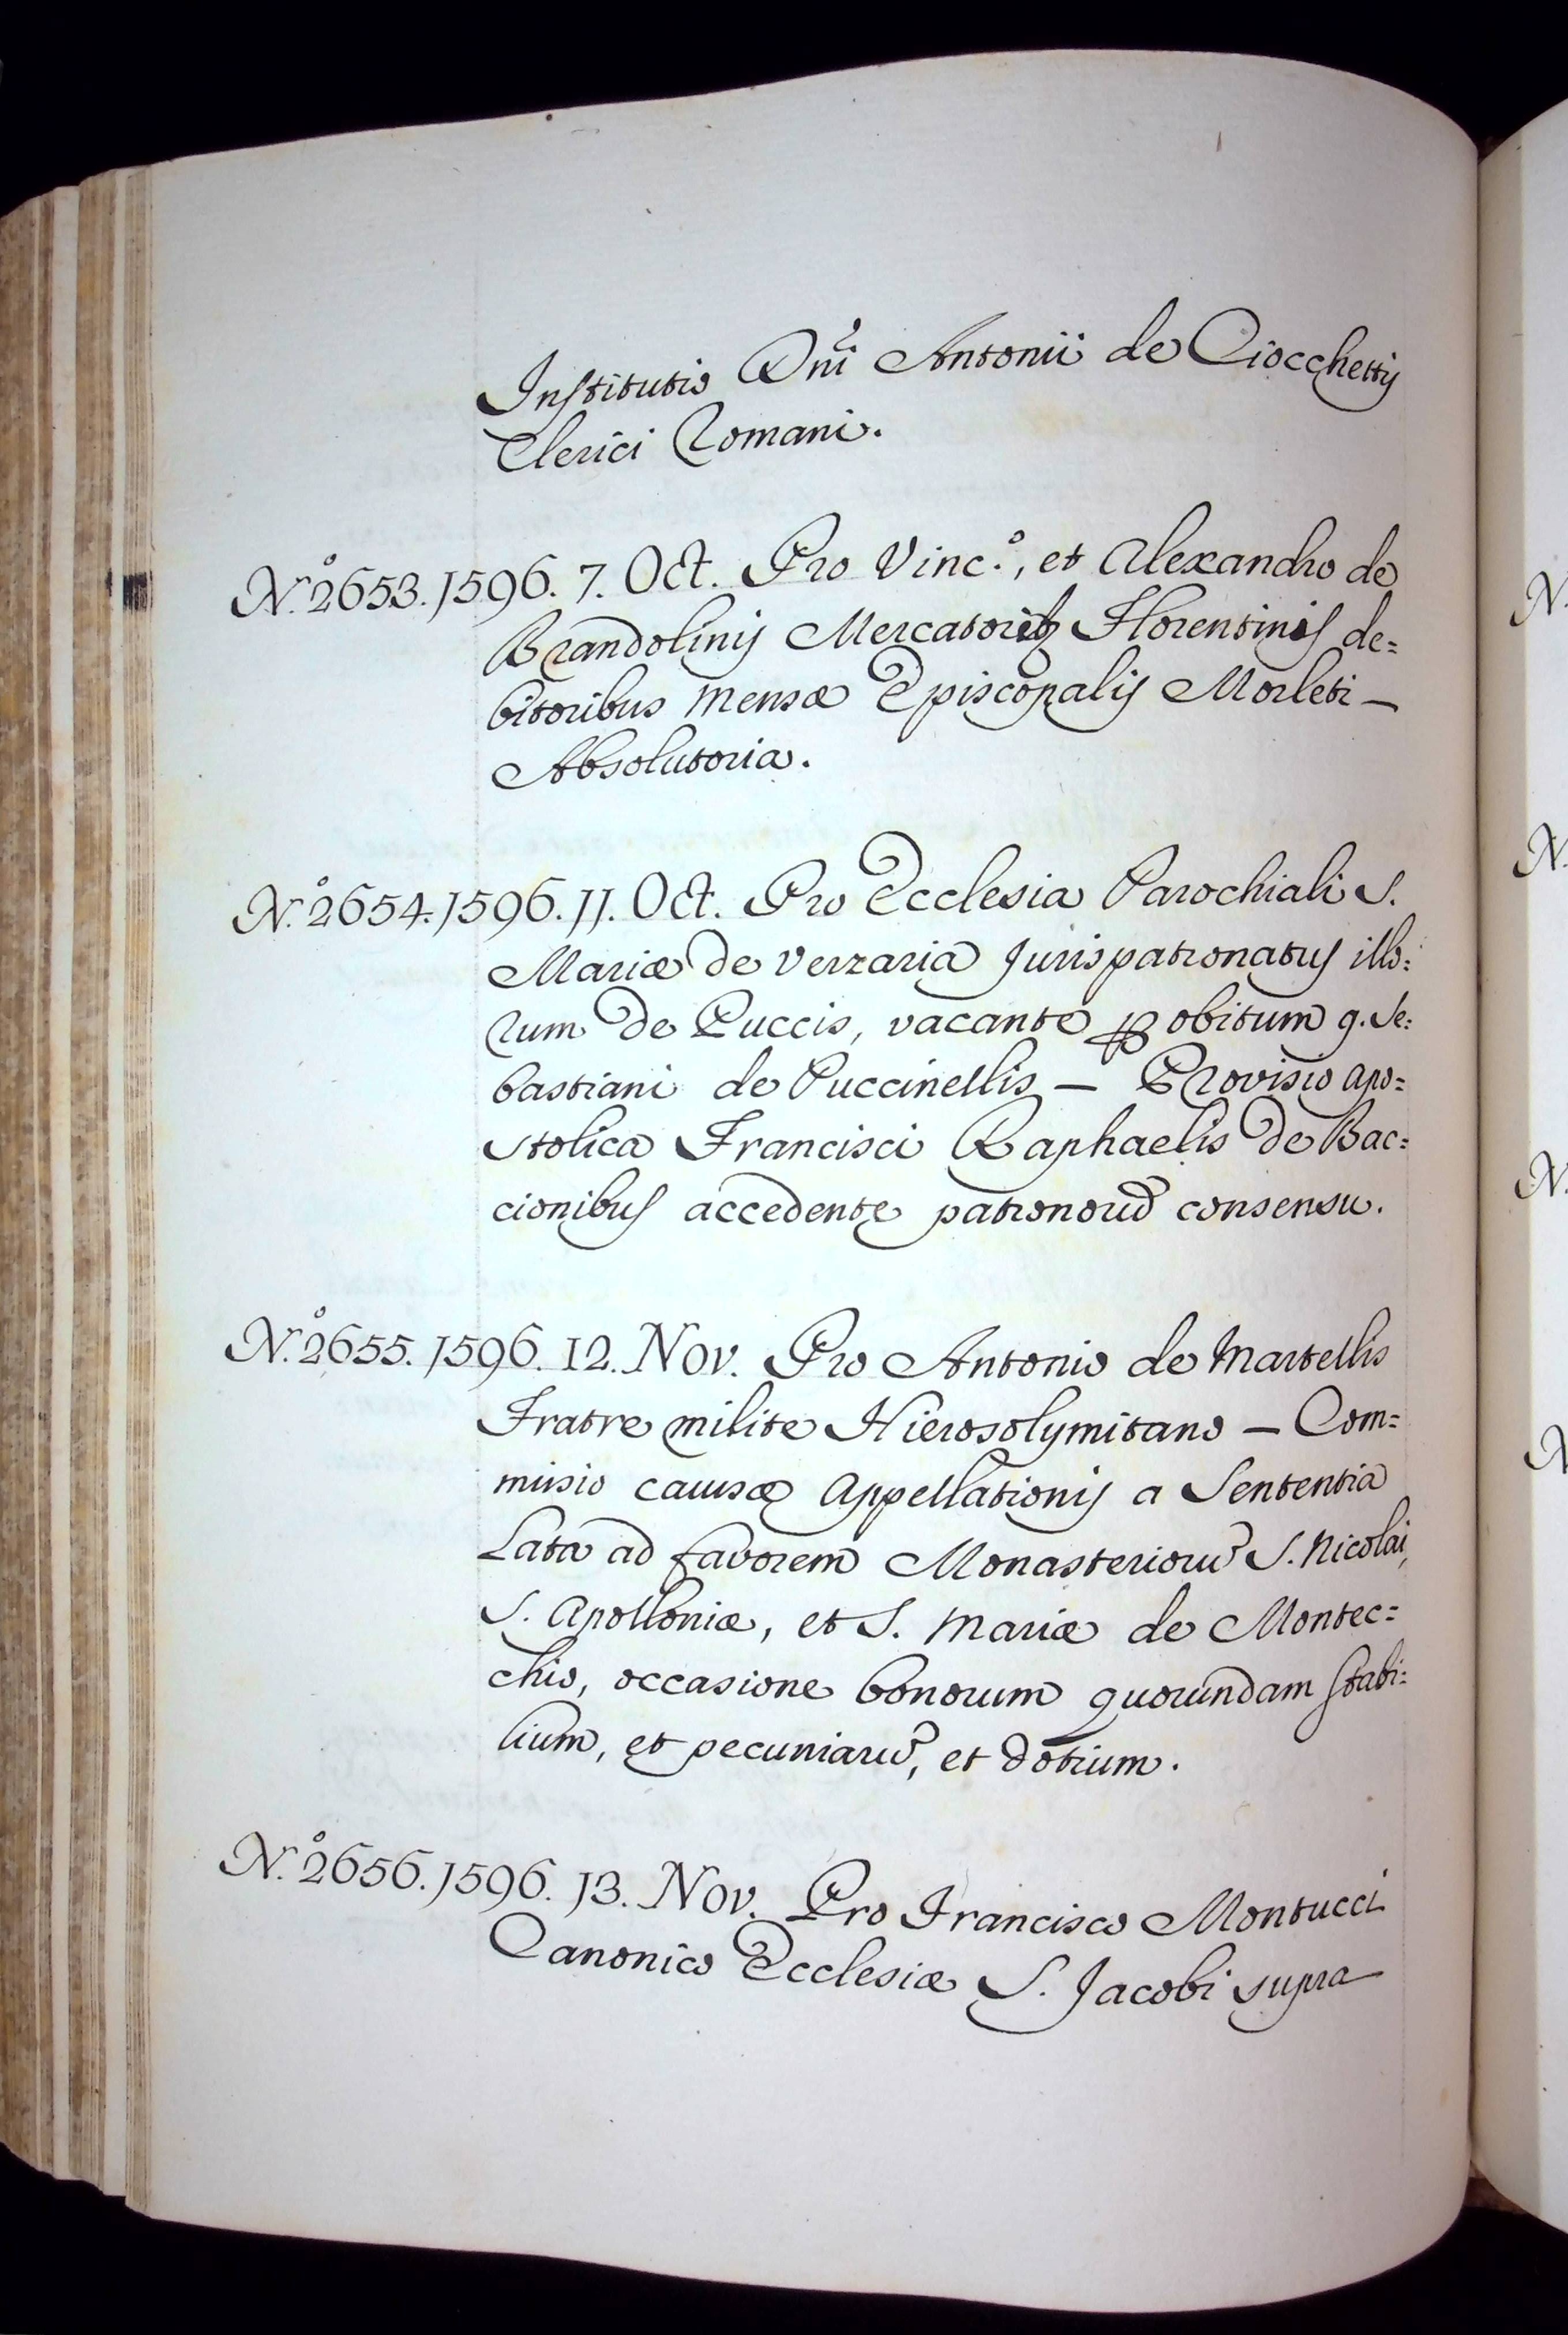 Institutio Dñi Antonii de Ciocchettis
Clerici Romani.
N.° 2653. 1596. 7. Oct. Pro Vinc.°, et Alexandro de
Brandolinis Mercatorib3 Florentinis de=
bitoribus Mensæ Episcopalis Morleti —
Absolutoria.
N.° 2654. 1596. 11. Oct. Pro Ecclesia Parochiali S.
Mariæ de Verzaria Jurispatronatus illo:
rum de Puccis, vacante ꝑ obitum q. Se:
bastiani de Puccinellis — Provisio Apo=
stolica Francisci Raphaelis de Bac=
cionibus accedente patronorũ consensu.
N.° 2655. 1596. 12. Nov. Pro Antonio de Martellis
Fratre milite Hierosolymitano — Com=
missio causæ Appellationis a Sententia
Lata ad favorem Monasteriorũ S. Nicolai,
S. Apolloniæ, et S. Mariæ de Montec=
chio, occasione bonorum quorundam stabi:
lium, et pecuniarũ, et dotium.
N.° 2656. 1596. 13. Nov. Pro Francisco Montucci
Canonico Ecclesiæ S. Jacobi supra
N.
N.
N.
N